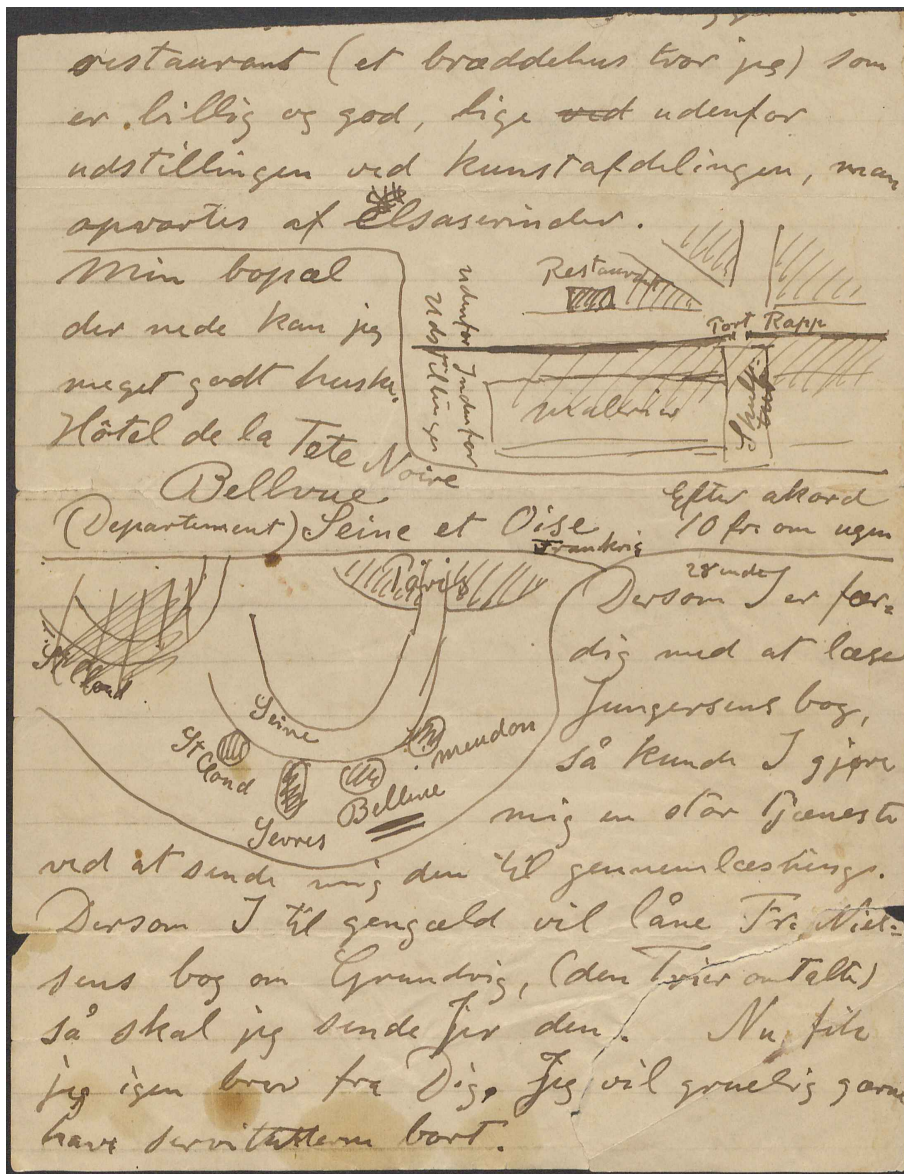 restaurant (et bræddehus tror jeg) som
er billig og god, lige ved udenfor
udstillingen ved kunstafdelingen, man
opvartes af Elsaserinder.
Min bopæl
der nede kan jeg
meget godt huske
Hôtel de la Tete Noire
Bellvue
(Departement) Seine et Oise
Frankrig
udenfor Indenfor
Udstillingen
Restaurant
Port Rapp
Malerier
Skulptur
Efter akord
10 frc om ugen
Paris
St Cloud
Seine
St Cloud
Sevres
Bellevue
Meudon
28ende
Dersom I er fær=
dig med at læse
Jungersens bog,
så kunde I gjøre
mig en stor tjeneste
ved at sende mig den til gennemlæsning.
Dersom I til gengæld vil låne Fr. Niel=
sens bog om Grundvig, (den Trier omtalte)
så skal jeg sende Jer den. Nu fik
jeg igen brev fra Dig. Jeg vil gruelig gærne
have servitutterne bort.